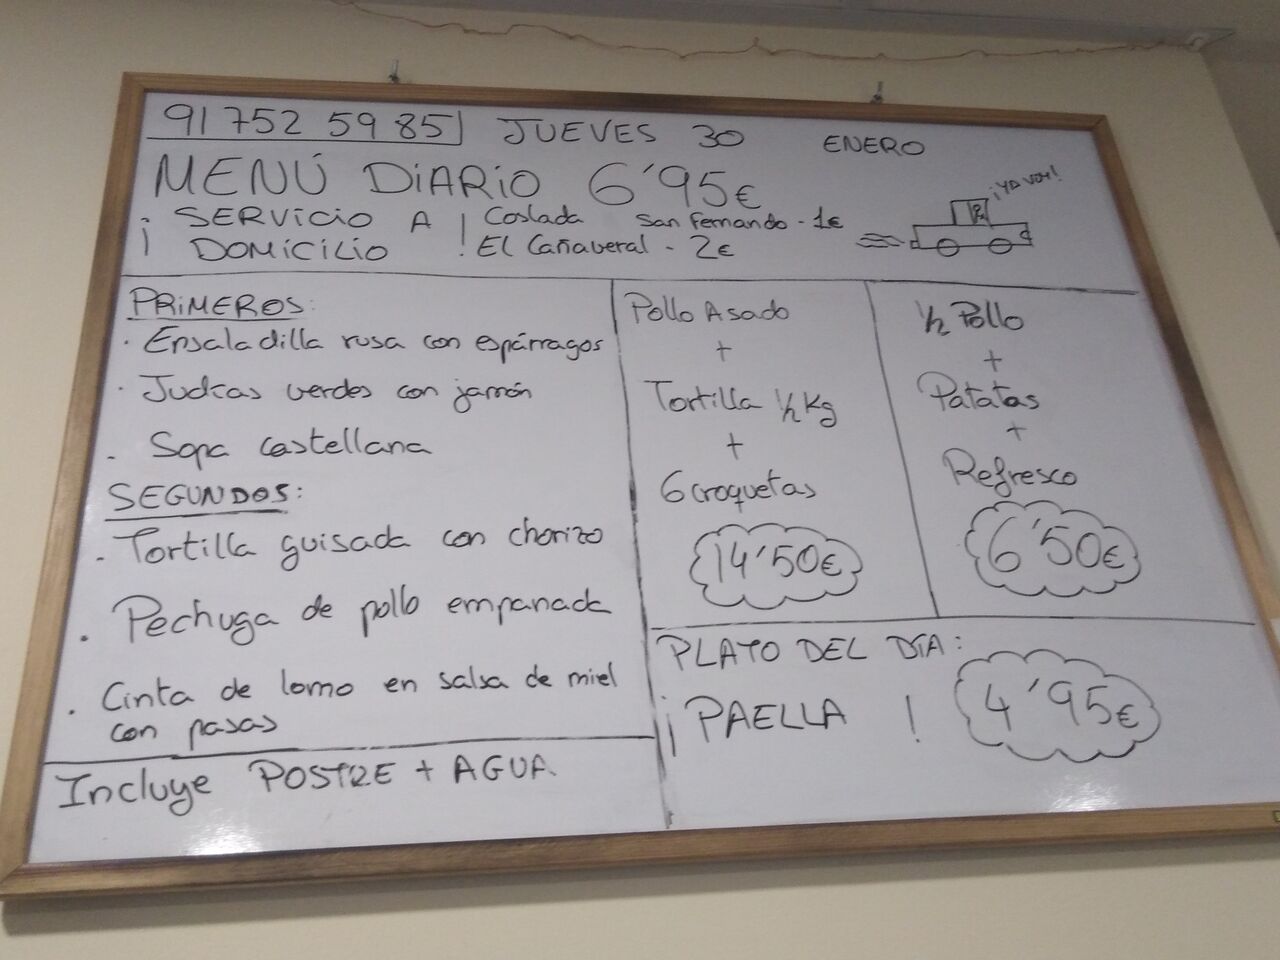 91 752 59 85 JUEVES 30 ENERO
MENÚ DIARIO 6'95€
¡ SERVICIO A DOMICILIO !
Coslada San Fernando - 1€
El Cañaveral - 2€
¡YA VOY!
PRIMEROS:
· Ensaladilla rusa con espárragos
· Judías verdes con jamón
· Sopa castellana
SEGUNDOS:
· Tortilla guisada con chorizo
· Pechuga de pollo empanada
· Cinta de lomo en salsa de miel
con pasas
Incluye POSTRE + AGUA.
Pollo Asado
+
Tortilla 1/2 Kg
+
6 croquetas
14'50€
1/2 Pollo
+
Patatas
+
Refresco
6'50€
PLATO DEL DÍA:
¡PAELLA !
4'95€